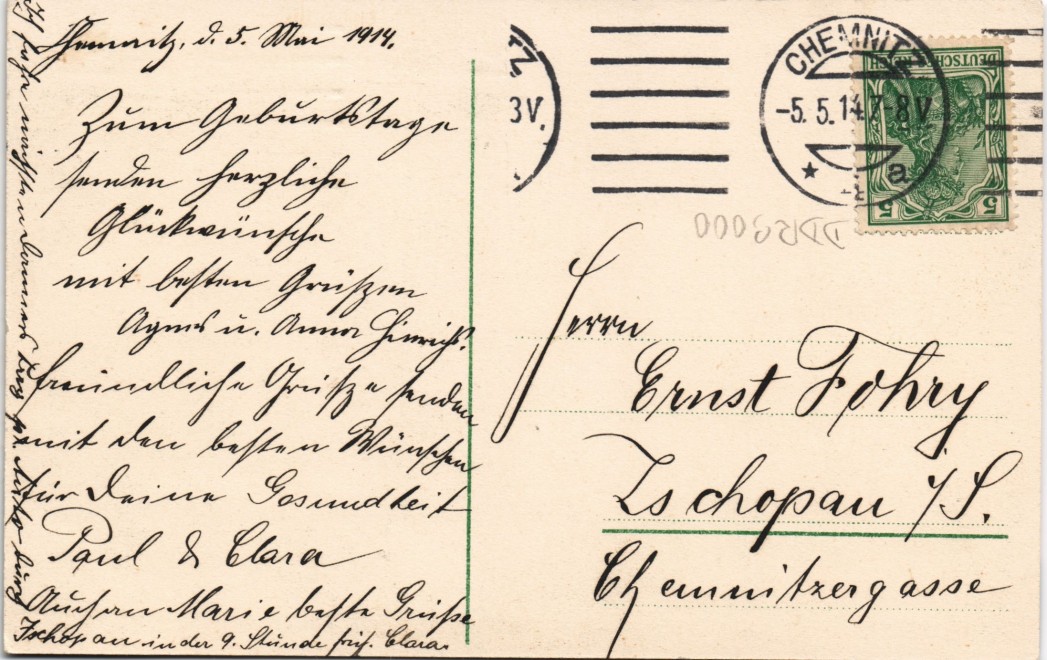 Chemnitz, d. 5. Mai 1914.
Zum Geburtstage
senden herzliche
Glückwünsche
mit besten Grüßen
Agnes u. Anna Hinrichs.
Freundliche Grüße senden
mit den besten Wünschen
für Deine Gesundheit
Paul & Clara
Auch an Marie beste Grüße
Ich fahre nächsten Donnerstag
Zschopau in der 9. Stunde früh. Clara.
CHEMNITZ
-5.5.14 7-8V
* a
TZ
8V.
DEUTSCHES REICH
5 5
DDR8000
Herrn
Ernst Fohry
Zschopau i/S.
Chemnitzergasse